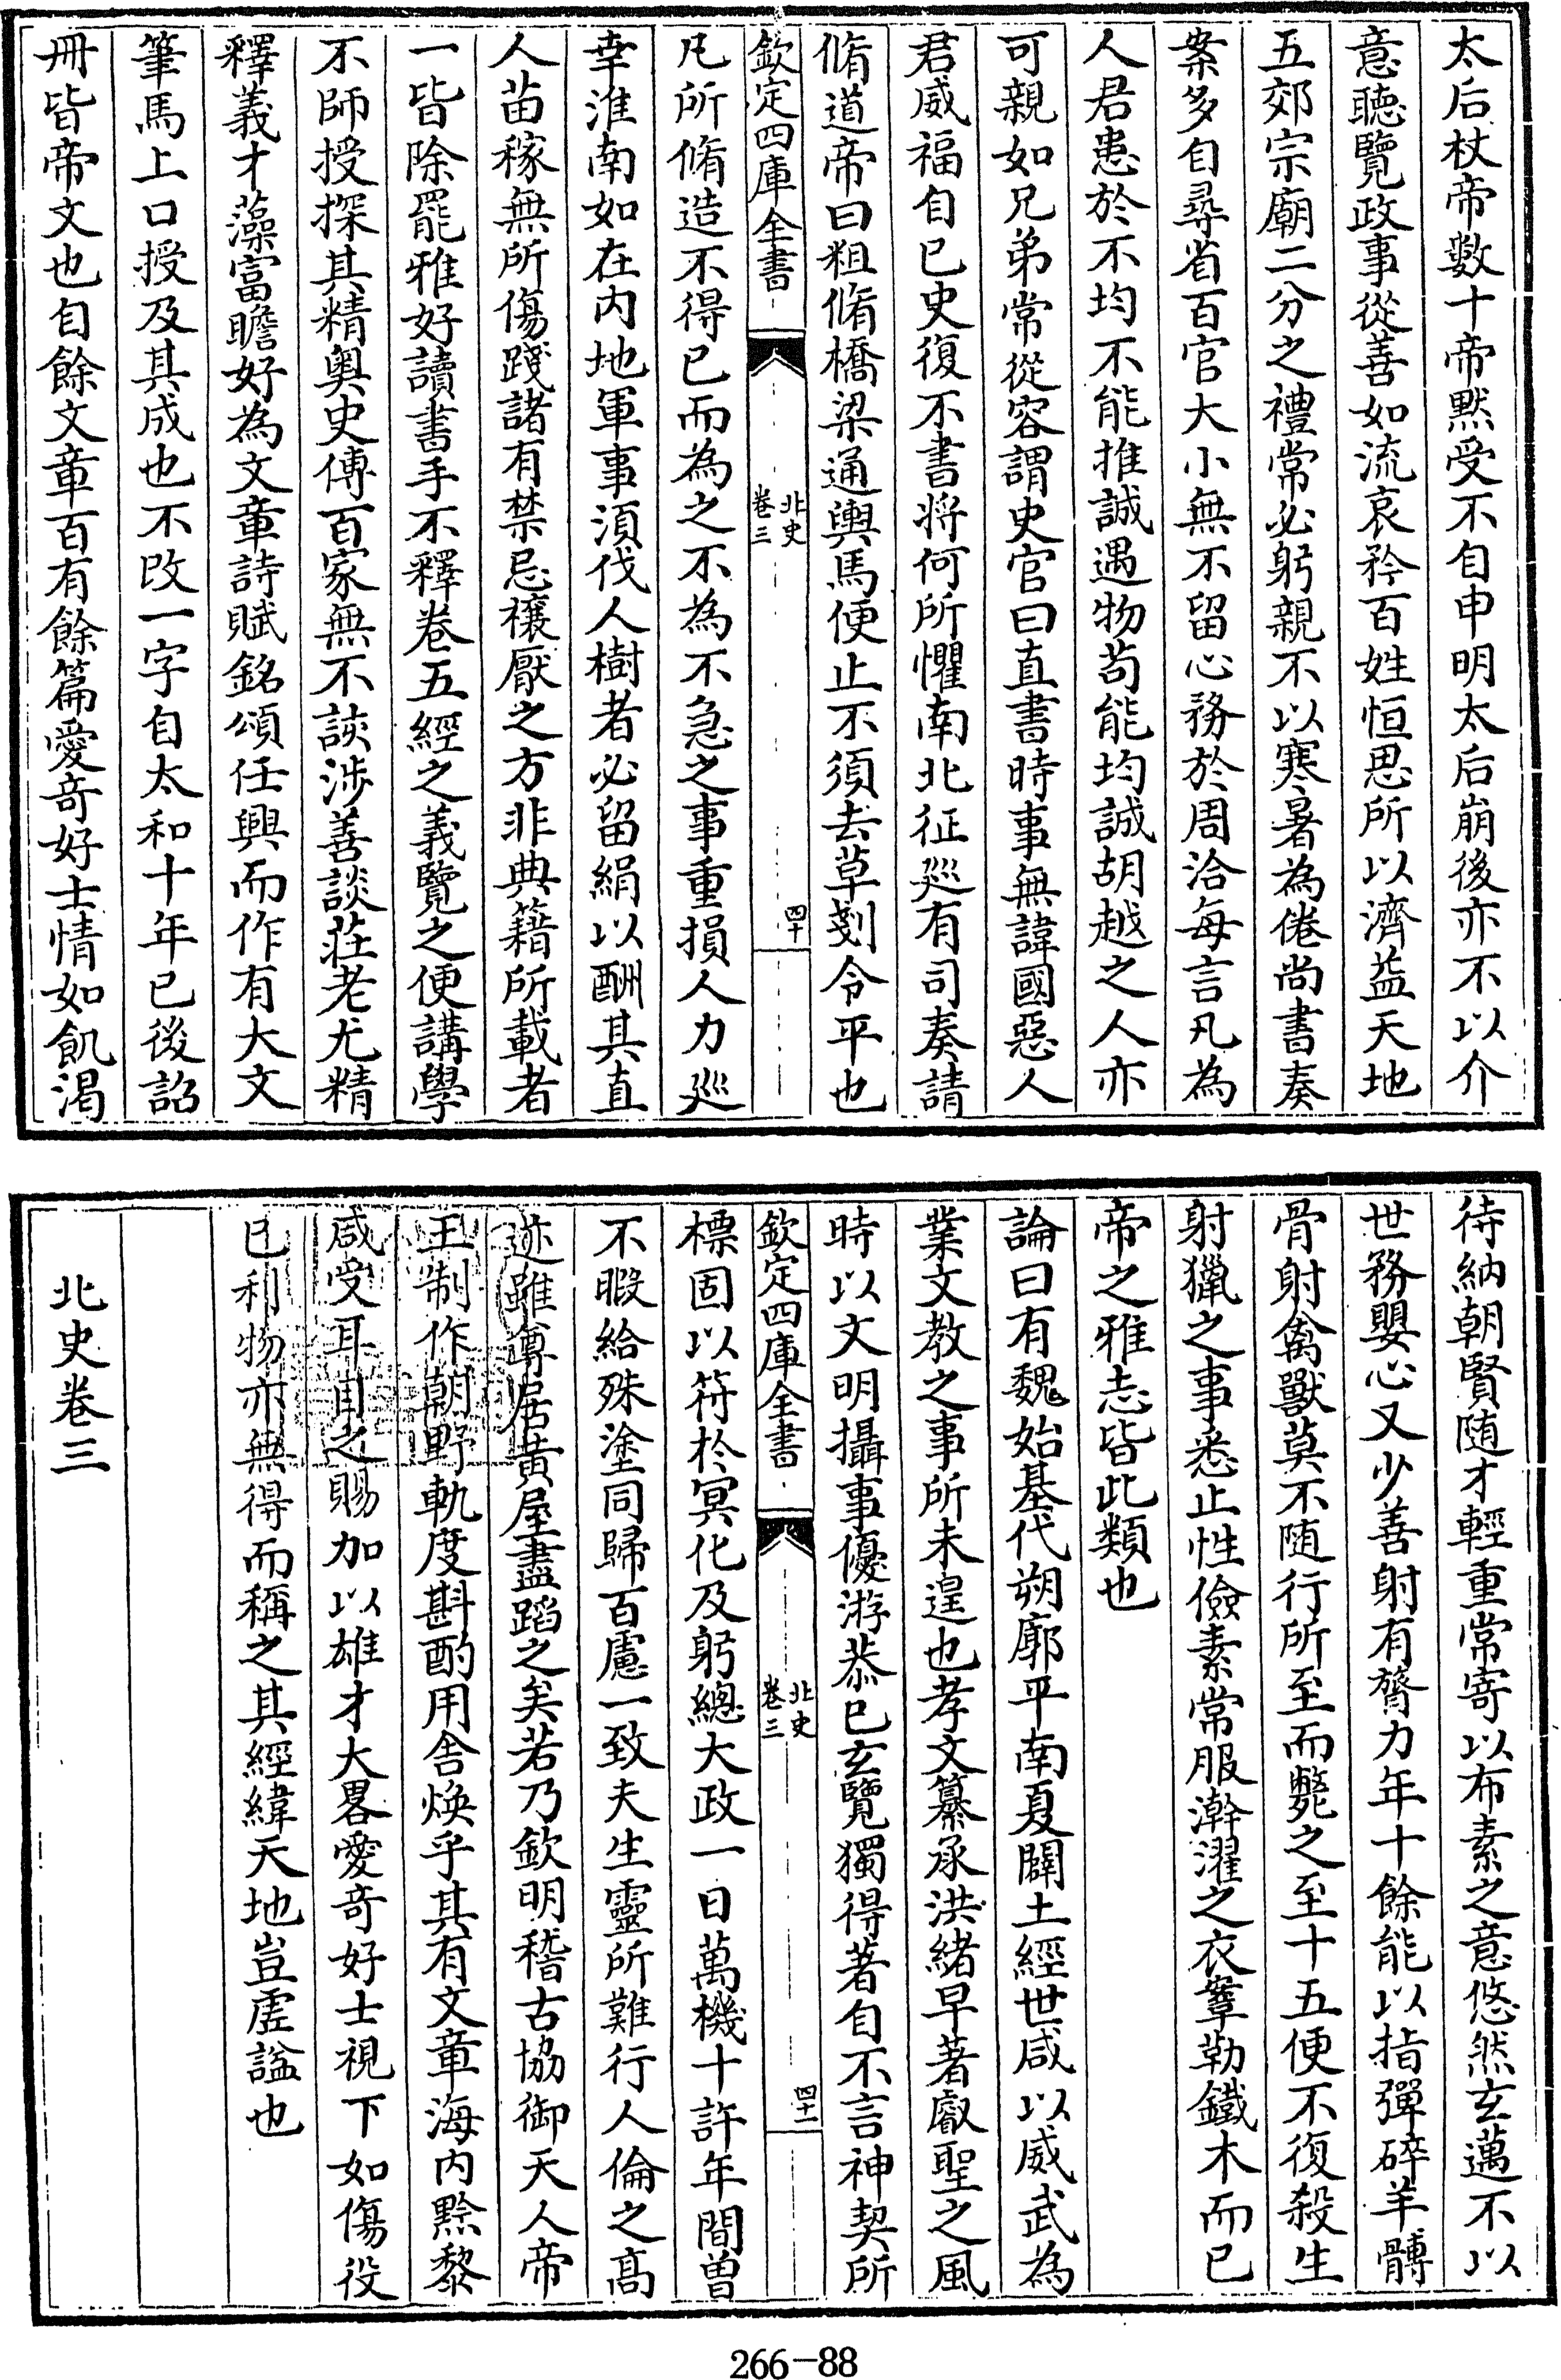 太后杖帝數十帝默受不自申明太后崩後亦不以介
意聽覽政事從善如流哀矜百姓恒思所以濟益天地
五郊宗廟二分之禮常必躬親不以寒暑為倦尚書奏
案多自尋省百官大小無不留心務於周洽每言凡為
人君患於不均不能推誠遇物苟能均誠胡越之人亦
可親如兄弟常從容謂史官曰直書時事無諱國惡人
君威福自已史復不書將何所懼南北征廵有司奏請
脩道帝曰粗脩橋梁通輿馬便止不須去草剗令平也
欽定四庫全書
北史
卷三
四十
凡所脩造不得已而為之不為不急之事重損人力廵
幸淮南如在内地軍事須伐人樹者必留絹以酬其直
人苗稼無所傷踐諸有禁忌禳厭之方非典籍所載者
一皆除罷雅好讀書手不釋卷五經之義覽之便講學
不師授探其精奥史傳百家無不該涉善談莊老尤精
釋義才藻富贍好為文章詩賦銘頌任興而作有大文
筆馬上口授及其成也不改一字自太和十年已後詔
冊皆帝文也自餘文章百有餘篇愛奇好士情如飢渴
待納朝賢随才輕重常寄以布素之意悠然玄邁不以
世務嬰心又少善射有膂力年十餘能以指彈碎羊髆
骨射禽獸莫不随行所至而斃之至十五便不復殺生
射獵之事悉止性儉素常服澣濯之衣鞌勒鐵木而已
帝之雅志皆此類也
論曰有魏始基代朔廓平南夏闢土經世咸以威武為
業文教之事所未遑也孝文纂承洪緒早著叡聖之風
時以文明攝事優游恭已玄覽獨得著自不言神契所
欽定四庫全書
北史
卷三
四十一
標固以符於冥化及躬總大政一日萬機十許年間曽
不暇給殊塗同歸百慮一致夫生靈所難行人倫之髙
迹雖尊居黄屋盡蹈之矣若乃欽明稽古協御天人帝
王制作朝野軌度斟酌用舍煥乎其有文章海内黔黎
咸受耳目之賜加以雄才大畧愛奇好士視下如傷役
已利物亦無得而稱之其經緯天地豈虚諡也
北史卷三
266-88